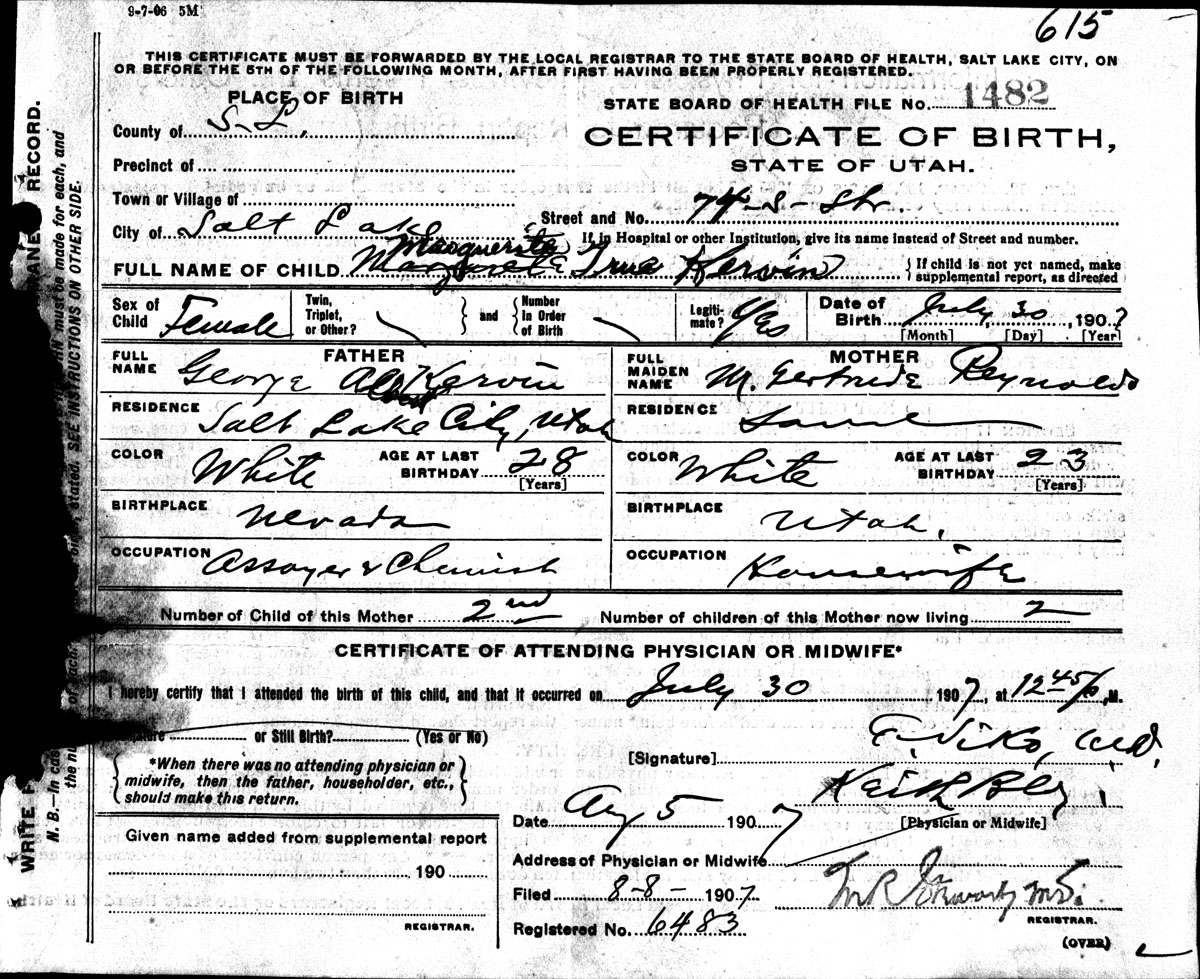 9-7-06 5M
615
THIS CERTIFICATE MUST BE FORWARDED BY THE LOCAL REGISTRAR TO THE STATE BOARD OF HEALTH, SALT LAKE CITY, ON
OR BEFORE THE 5TH OF THE FOLLOWING MONTH, AFTER FIRST HAVING BEEN PROPERLY REGISTERED.
PLACE OF BIRTH
STATE BOARD OF HEALTH FILE No. 1482
County of S-L,
CERTIFICATE OF BIRTH,
Precinct of
STATE OF UTAH.
Town or Village of
Street and No. 74-S-Str.
City of Salt Lake
If in Hospital or other Institution, give its name instead of Street and number.
Marguerite
FULL NAME OF CHILD True Kervin
{ If child is not yet named, make
supplemental report, as directed
Sex of Child Female
Twin, Triplet, or Other?
and
Number In Order of Birth
Legiti-mate? Yes
Date of Birth July 30, 1907
[Month] [Day] [Year]
FATHER
FULL NAME George Kervin
RESIDENCE Salt Lake City, Utah
COLOR White
AGE AT LAST BIRTHDAY 28
[Years]
BIRTHPLACE Nevada
OCCUPATION Assayer & Chemist
MOTHER
FULL MAIDEN NAME M. Gertrude Reynolds
RESIDENCE Same
COLOR White
AGE AT LAST BIRTHDAY 23
[Years]
BIRTHPLACE Utah.
OCCUPATION Housewife
Number of Child of this Mother 2nd
Number of children of this Mother now living 2
CERTIFICATE OF ATTENDING PHYSICIAN OR MIDWIFE*
I hereby certify that I attended the birth of this child, and that it occurred on July 30 1907, at 12 45 P. M.
or Still Birth? (Yes or No)
[Signature] M.D.
*When there was no attending physician or
midwife, then the father, householder, etc.,
should make this return.
Keith Bldg.
[Physician or Midwife]
Date Aug 5 1907
Address of Physician or Midwife
Filed 8-8- 1907
REGISTRAR.
Registered No. 6483
(OVER)
Given name added from supplemental report
190
REGISTRAR.
WRITE
ANENT RECORD.
N. B.—In cas
must be made for each, and
the nu
stated. SEE INSTRUCTIONS ON OTHER SIDE.